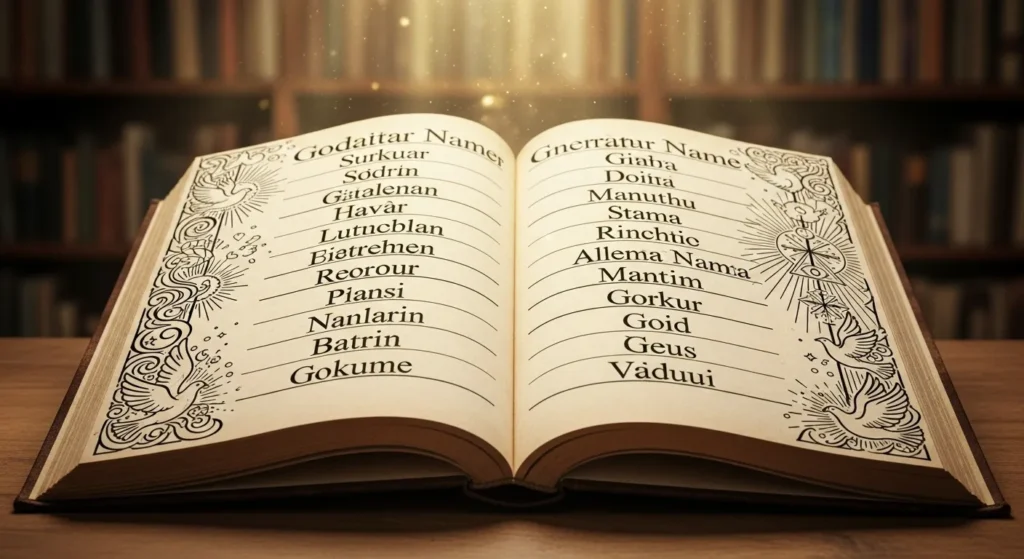 Godaitar Namer
Surkuar
Sødrin
Gätalenan
Havàr
Lutncblan
Eietrehmen
Reorour
Piansi
Nanlarin
Batrin
Gokume
Gnerratur Name
Giaba
Doitta
Manuthu
Stama
Rinchtic
Allema Nama
Mantim
Gorkur
Goid
Geus
Váduui